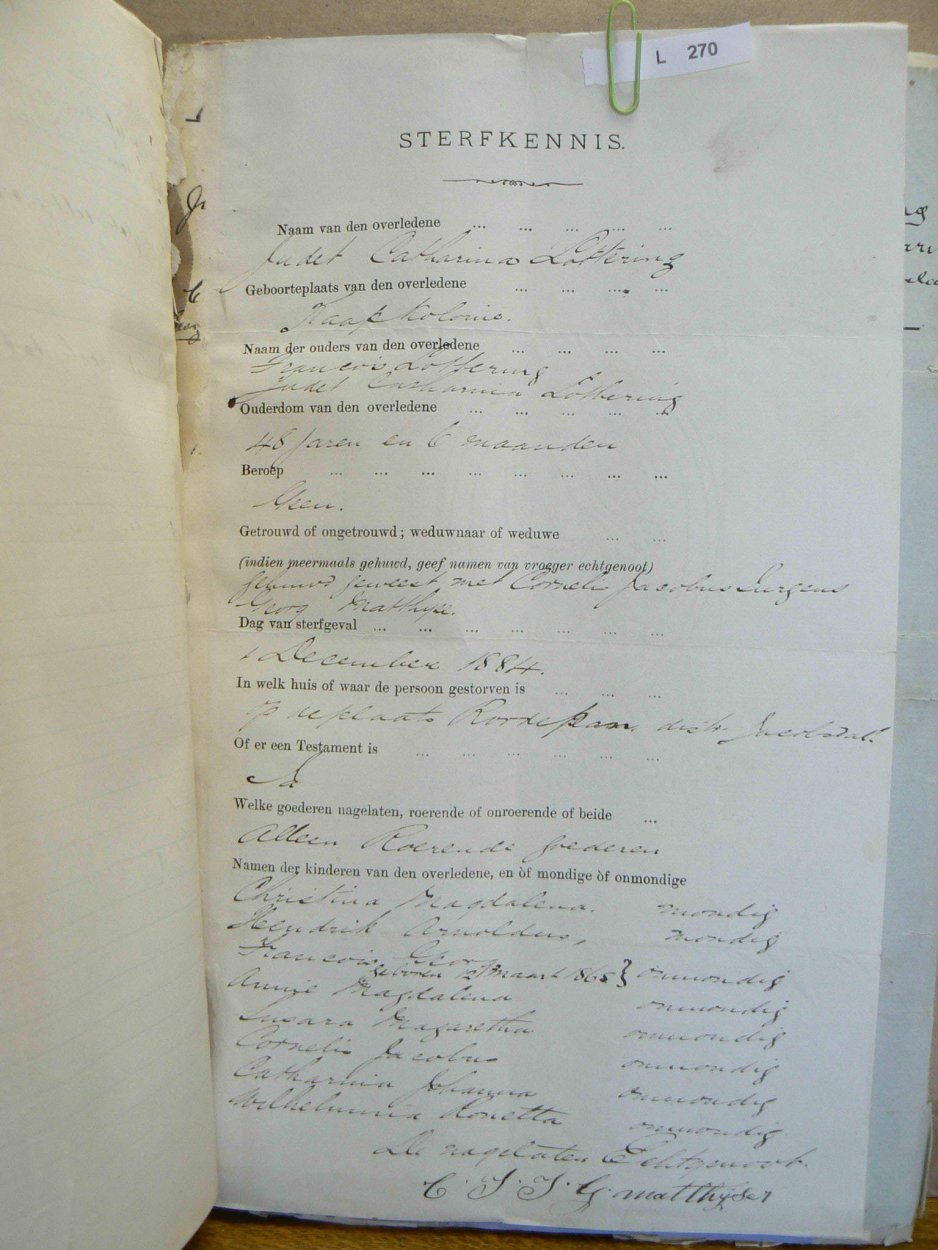 L 270
STERFKENNIS.
Naam van den overledene ... ... ... ... ...
Judet Catharina Lottering
Geboorteplaats van den overledene ... ... ... ...
Kaap Kolonie.
Naam der ouders van den overledene ... ... ... ...
Francois Lottering
Judet Catharina Lottering
Ouderdom van den overledene ... ... ... ... ...
48 Jaren en 6 maanden
Beroep ... ... ... ... ... ... ... ...
Geen.
Getrouwd of ongetrouwd; weduwnaar of weduwe ... ...
(indien meermaals gehuwd, geef namen van vroeger echtgenoot)
gehuwd geweest met Cornelis Jacobus Jurgens
Georg Matthyse.
Dag van sterfgeval ... ... ... ... ... ... ...
1 December 1884.
In welk huis of waar de persoon gestorven is ... ... ...
Op de plaats Roodepan, distr Jacobsdal.
Of er een Testament is ... ... ... ... ... ...
Ja
Welke goederen nagelaten, roerende of onroerende of beide ...
Alleen Roerende goederen
Namen der kinderen van den overledene, en òf mondige òf onmondige
Christina Magdalena. mondig
Hendrik Arnoldus, mondig
Francois Georg
geboren 12 Maart 1865} onmondig
Annie Magdalena onmondig
Susara Magaretha onmondig
Cornelis Jacobus onmondig
Catharina Johanna onmondig
Wilhelmina onmondig
De nagelaten Echtgenoot.
C. J. J. G. matthyser